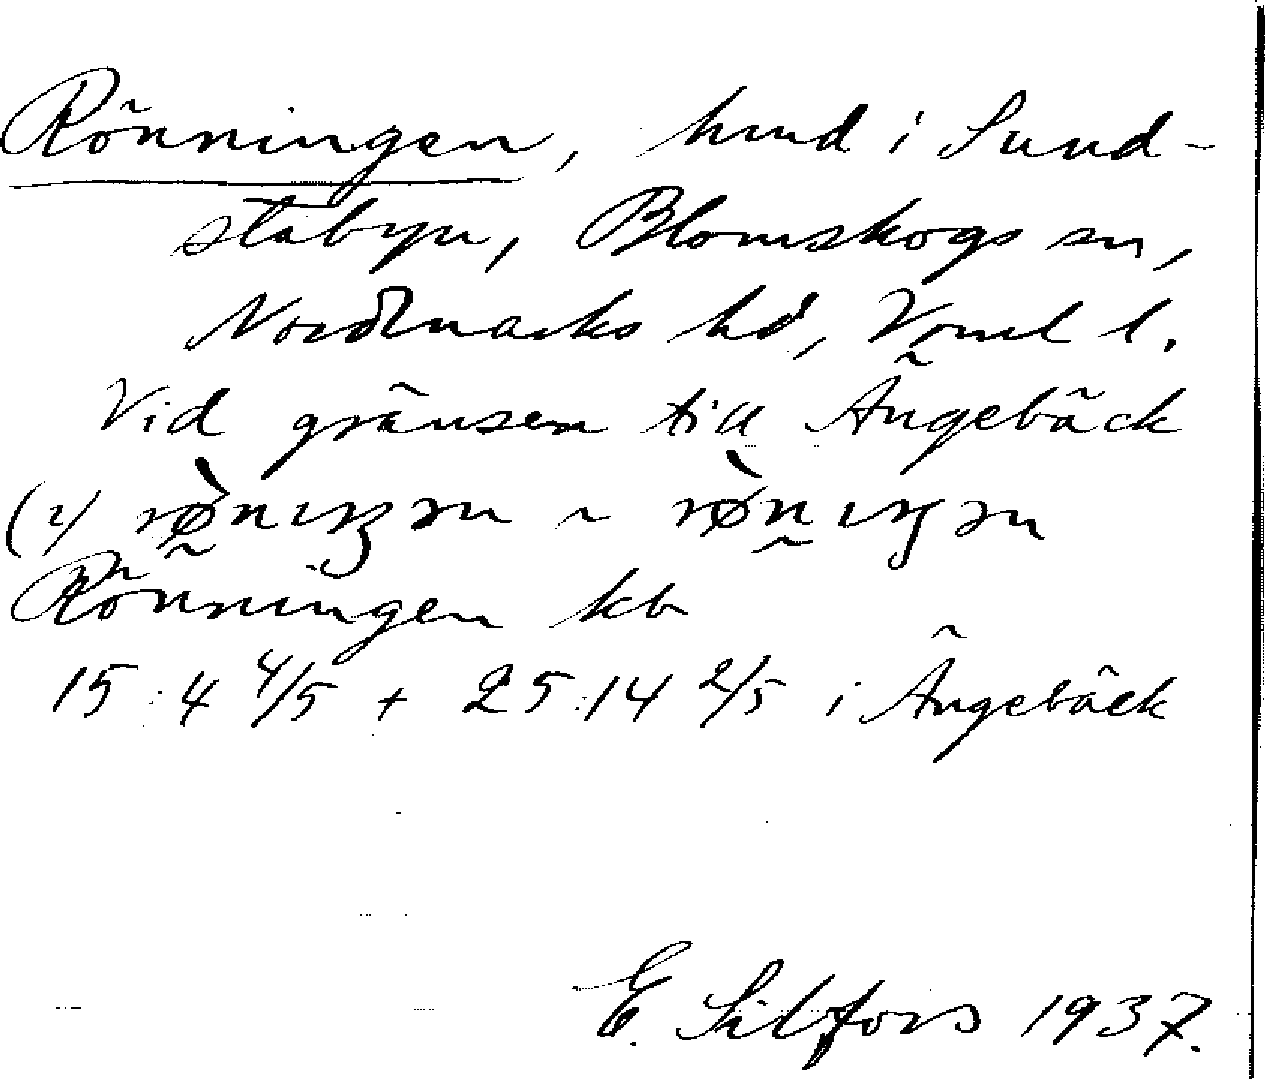 Rönningen, hmd i Sund-
stabyn, Blomskogs sn,
Nordmarks hd, Vrml l.
Vid gränsen till Ängebäck
(2) rø̀nıŋən ~ rø̀nıŋən
Rönningen kb
15:4 4/5 + 25:14 2/5 i Ängebäck
E. Silfors 1937.